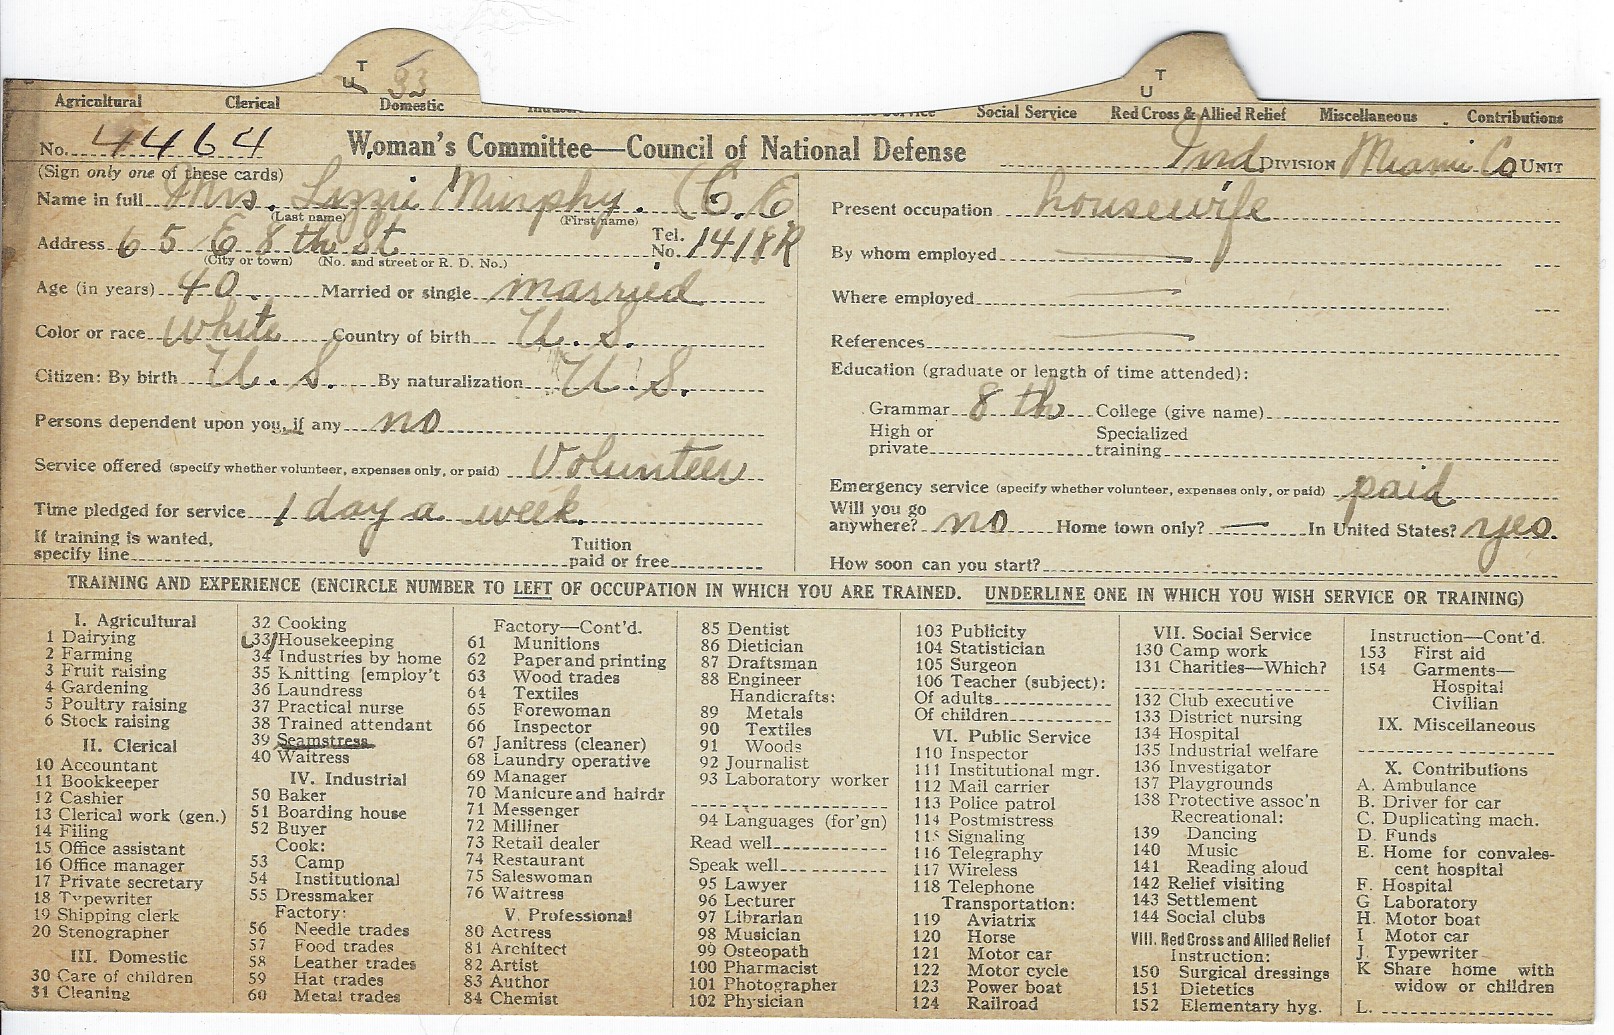 T U 33 T U
Agricultural Clerical Domestic Social Service Red Cross & Allied Relief Miscellaneous Contributions
No. 4464 Woman's Committee—Council of National Defense Ind DIVISION Miami Co UNIT
(Sign only one of these cards)
Name in full Mrs. Lizzie Murphy. (C.E.
(Last name) (First name)
Address 65 E 8th St Tel. No. 1418R
(City or town) (No. and street or R. D. No.)
Age (in years) 40 Married or single married
Color or race white Country of birth U. S.
Citizen: By birth U. S. By naturalization U. S.
Persons dependent upon you, if any no
Service offered (specify whether volunteer, expenses only, or paid) Volunteer
Time pledged for service 1 day a week.
If training is wanted, specify line Tuition paid or free
Present occupation housewife
By whom employed
Where employed
References
Education (graduate or length of time attended):
Grammar 8th College (give name)
High or private Specialized training
Emergency service (specify whether volunteer, expenses only, or paid) paid
Will you go anywhere? no Home town only? — In United States? yes.
How soon can you start?
TRAINING AND EXPERIENCE (ENCIRCLE NUMBER TO LEFT OF OCCUPATION IN WHICH YOU ARE TRAINED. UNDERLINE ONE IN WHICH YOU WISH SERVICE OR TRAINING)
I. Agricultural
1 Dairying
2 Farming
3 Fruit raising
4 Gardening
5 Poultry raising
6 Stock raising
II. Clerical
10 Accountant
11 Bookkeeper
12 Cashier
13 Clerical work (gen.)
14 Filing
15 Office assistant
16 Office manager
17 Private secretary
18 Typewriter
19 Shipping clerk
20 Stenographer
III. Domestic
30 Care of children
31 Cleaning
32 Cooking
33 Housekeeping
34 Industries by home
35 Knitting [employ't
36 Laundress
37 Practical nurse
38 Trained attendant
39 Seamstress
40 Waitress
IV. Industrial
50 Baker
51 Boarding house
52 Buyer
Cook:
53 Camp
54 Institutional
55 Dressmaker
Factory:
56 Needle trades
57 Food trades
58 Leather trades
59 Hat trades
60 Metal trades
Factory—Cont'd.
61 Munitions
62 Paper and printing
63 Wood trades
64 Textiles
65 Forewoman
66 Inspector
67 Janitress (cleaner)
68 Laundry operative
69 Manager
70 Manicure and hairdr
71 Messenger
72 Milliner
73 Retail dealer
74 Restaurant
75 Saleswoman
76 Waitress
V. Professional
80 Actress
81 Architect
82 Artist
83 Author
84 Chemist
85 Dentist
86 Dietician
87 Draftsman
88 Engineer
Handicrafts:
89 Metals
90 Textiles
91 Woods
92 Journalist
93 Laboratory worker
94 Languages (for'gn)
Read well
Speak well
95 Lawyer
96 Lecturer
97 Librarian
98 Musician
99 Osteopath
100 Pharmacist
101 Photographer
102 Physician
103 Publicity
104 Statistician
105 Surgeon
106 Teacher (subject):
Of adults
Of children
VI. Public Service
110 Inspector
111 Institutional mgr.
112 Mail carrier
113 Police patrol
114 Postmistress
115 Signaling
116 Telegraphy
117 Wireless
118 Telephone
Transportation:
119 Aviatrix
120 Horse
121 Motor car
122 Motor cycle
123 Power boat
124 Railroad
VII. Social Service
130 Camp work
131 Charities—Which?
132 Club executive
133 District nursing
134 Hospital
135 Industrial welfare
136 Investigator
137 Playgrounds
138 Protective assoc'n
Recreational:
139 Dancing
140 Music
141 Reading aloud
142 Relief visiting
143 Settlement
144 Social clubs
VIII. Red Cross and Allied Relief
Instruction:
150 Surgical dressings
151 Dietetics
152 Elementary hyg.
Instruction—Cont'd.
153 First aid
154 Garments—
Hospital
Civilian
IX. Miscellaneous
X. Contributions
A. Ambulance
B. Driver for car
C. Duplicating mach.
D. Funds
E. Home for convales-
cent hospital
F. Hospital
G Laboratory
H. Motor boat
I Motor car
J. Typewriter
K Share home with
widow or children
L.